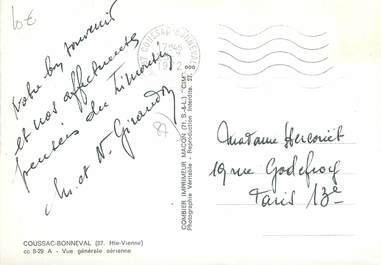 10€
COUSSAC-BONNEVAL
17H45
Votre bon souvenir
et nos affectueuses
pensées du Limousin
M. et M. Giraudon
Madame Hercoriet
19 rue Godefroy
Paris 13e
COMBIER IMPRIMEUR MACON (71. S.-&-L.) "CIM"
Photographie Véritable - Reproduction Interdite.
COUSSAC-BONNEVAL (87. Hte-Vienne)
cc 8-29 A - Vue générale aérienne